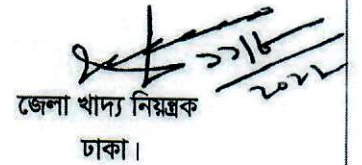 ২২/৮
২০২২
জেলা খাদ্য নিয়ন্ত্রক
ঢাকা।